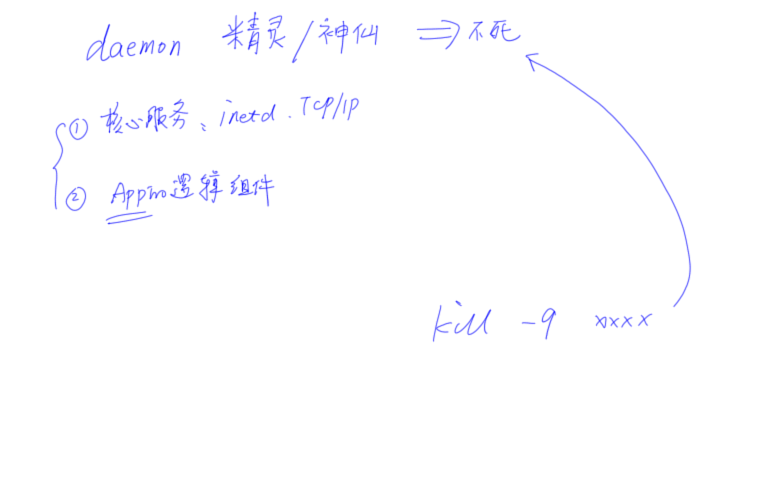 daemon 精灵/神仙 ⇒ 不死
① 核心服务: inetd. TCP/IP
② App的逻辑组件
kill -9 xxxx